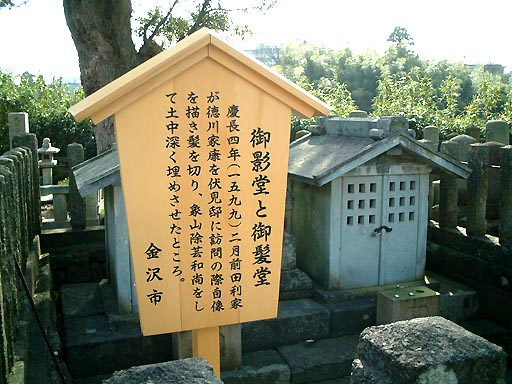 御影堂と御髪堂
慶長四年（一五九九）二月前田利家
が徳川家康を伏見邸に訪問の際自像
を髪を切り、象山徐芸和尚をし
て土中深く埋めさせたところ。
金沢市